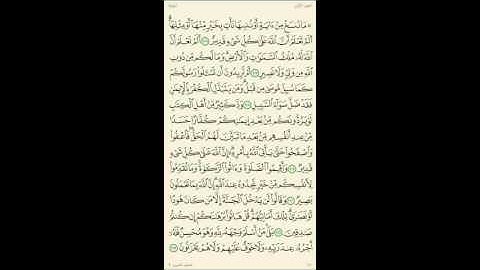 ۞ مَا نَنسَخْ مِنْ ءَايَةٍ أَوْ نُنسِهَا نَأْتِ بِخَيْرٍ مِّنْهَآ أَوْ مِثْلِهَآ
أَلَمْ تَعْلَمْ أَنَّ ٱللَّهَ عَلَىٰ كُلِّ شَىْءٍ قَدِيرٌ ١٠٦ أَلَمْ تَعْلَمْ أَنَّ
ٱللَّهَ لَهُۥ مُلْكُ ٱلسَّمَٰوَٰتِ وَٱلْأَرْضِ وَمَا لَكُم مِّن دُونِ
ٱللَّهِ مِن وَلِىٍّ وَلَا نَصِيرٍ ١٠٧ أَمْ تُرِيدُونَ أَن تَسْـَٔلُوا۟ رَسُولَكُمْ
كَمَا سُئِلَ مُوسَىٰ مِن قَبْلُ وَمَن يَتَبَدَّلِ ٱلْكُفْرَ بِٱلْإِيمَٰنِ
فَقَدْ ضَلَّ سَوَآءَ ٱلسَّبِيلِ ١٠٨ وَدَّ كَثِيرٌ مِّنْ أَهْلِ ٱلْكِتَٰبِ
لَوْ يَرُدُّونَكُم مِّنۢ بَعْدِ إِيمَٰنِكُمْ كُفَّارًا حَسَدًا
مِّنْ عِندِ أَنفُسِهِم مِّنۢ بَعْدِ مَا تَبَيَّنَ لَهُمُ ٱلْحَقُّ فَٱعْفُوا۟
وَٱصْفَحُوا۟ حَتَّىٰ يَأْتِىَ ٱللَّهُ بِأَمْرِهِۦٓ إِنَّ ٱللَّهَ عَلَىٰ كُلِّ شَىْءٍ
قَدِيرٌ ١٠٩ وَأَقِيمُوا۟ ٱلصَّلَوٰةَ وَءَاتُوا۟ ٱلزَّكَوٰةَ وَمَا تُقَدِّمُوا۟
لِأَنفُسِكُم مِّنْ خَيْرٍ تَجِدُوهُ عِندَ ٱللَّهِ إِنَّ ٱللَّهَ بِمَا تَعْمَلُونَ
بَصِيرٌ ١١٠ وَقَالُوا۟ لَن يَدْخُلَ ٱلْجَنَّةَ إِلَّا مَن كَانَ هُودًا
أَوْ نَصَٰرَىٰ تِلْكَ أَمَانِيُّهُمْ قُلْ هَاتُوا۟ بُرْهَٰنَكُمْ إِن كُنتُمْ
صَٰدِقِينَ ١١١ بَلَىٰ مَنْ أَسْلَمَ وَجْهَهُۥ لِلَّهِ وَهُوَ مُحْسِنٌ فَلَهُۥٓ
أَجْرُهُۥ عِندَ رَبِّهِۦ وَلَا خَوْفٌ عَلَيْهِمْ وَلَا هُمْ يَحْزَنُونَ ١١٢